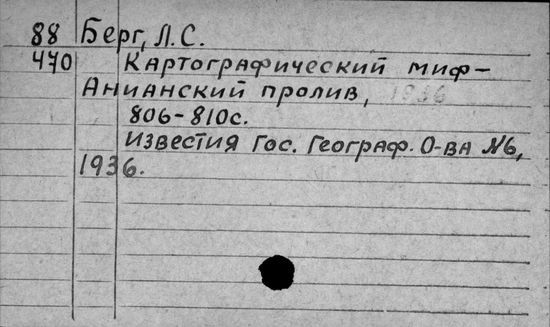 88 Берг, Л.С.
470 Картографический миф-
Анианский пролив, 1936
806-810с.
Известия Гос. Географ. О-ва №6,
1936.